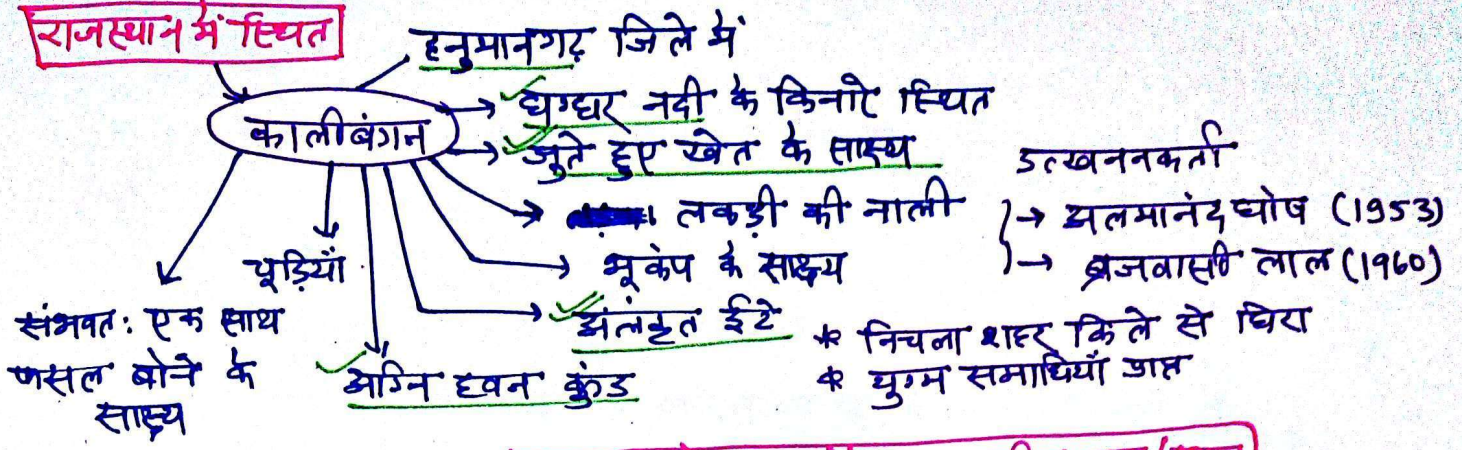 राजस्थान में स्थित
हनुमानगढ़ जिले में
कालीबंगन
घग्घर नदी के किनारे स्थित
जुते हुए खेत के साक्ष्य
लकड़ी की नाली
भूकंप के साक्ष्य
अलंकृत ईटे
अग्नि हवन कुंड
चूड़ियाँ
संभवत: एक साथ
फसल बोने के
साक्ष्य
उत्खननकर्ता
अलमानंद घोष (1953)
ब्रजवासी लाल (1960)
* निचला शहर किले से घिरा
* युग्म समाधियाँ प्राप्त